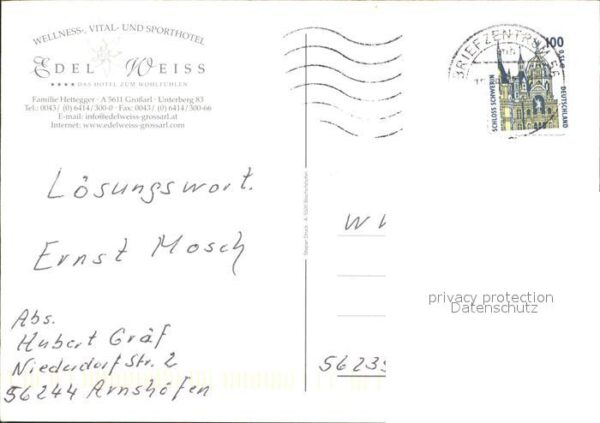 WELLNESS-, VITAL- UND SPORTHOTEL
EDEL WEISS
DAS HOTEL ZUM WOHLFÜHLEN
Familie Hettegger · A 5611 Großarl · Unterberg 83
Tel.: 0043/ (0) 6414/ 300-0 · Fax: 0043/ (0) 6414/300-66
E-mail: info@edelweiss-grossarl.at
Internet: www.edelweiss-grossarl.com
BRIEFZENTRUM 56
100
0,51€
SCHLOSS SCHWERIN
DEUTSCHLAND
Lösungswort.
Ernst Mosch
Abs.
Hubert Gräf
Niederdorf Str. 2
56244 Arnshöfen
W W
5623
privacy protection
Datenschutz